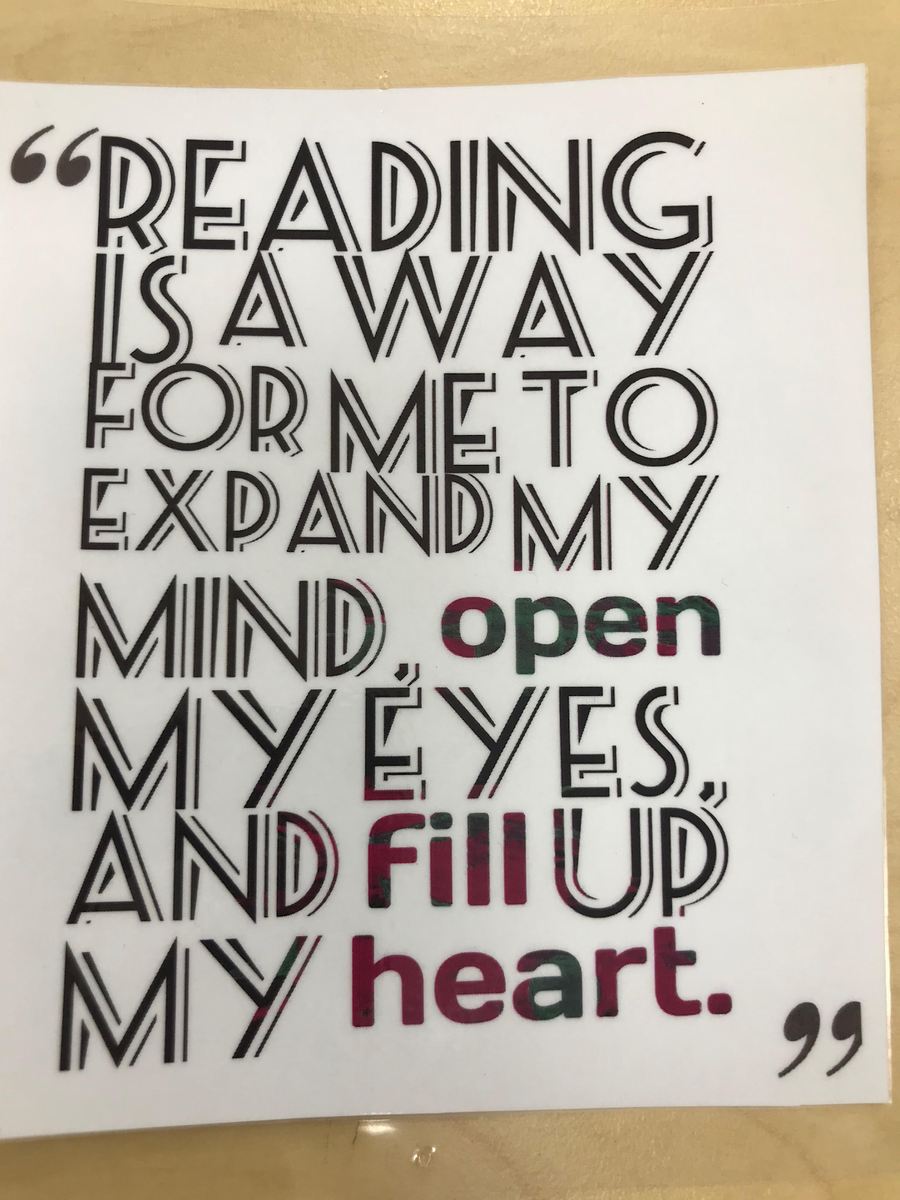 “READING
IS A WAY
FOR ME TO
EXPAND MY
MIND, open
MY EYES,
AND fill UP
MY heart.”